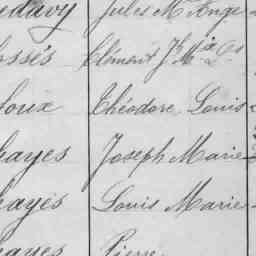 Jules M Ange
ossés Clément Jh Mie Ls
Théodore Louis
hayes Joseph Marie
hayes Louis Marie
hayes Pierre